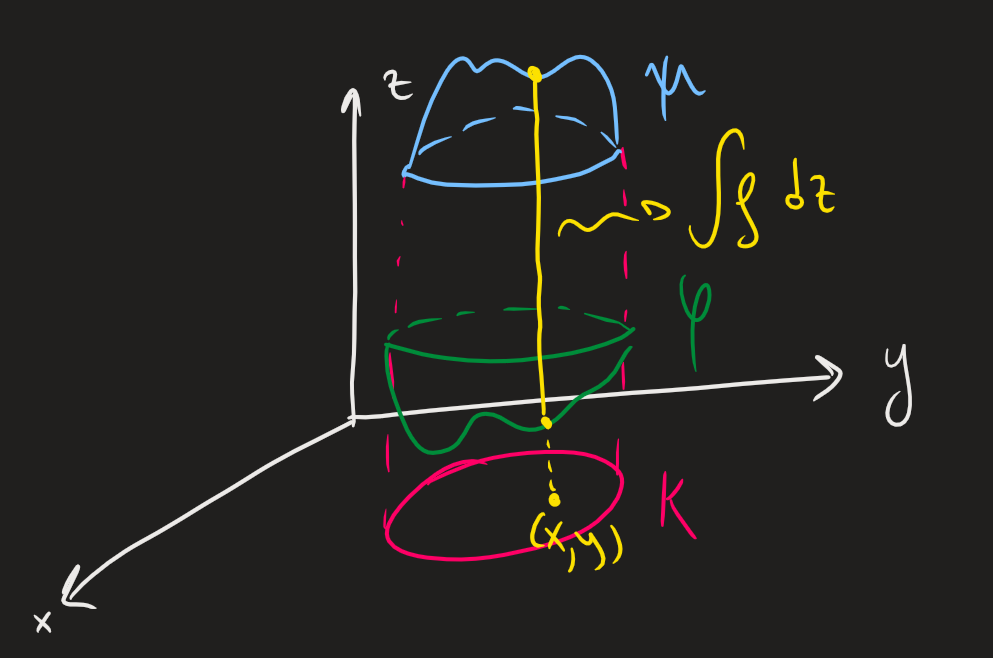 z
μ
∫ρ dz
φ
y
K
(x,y)
x